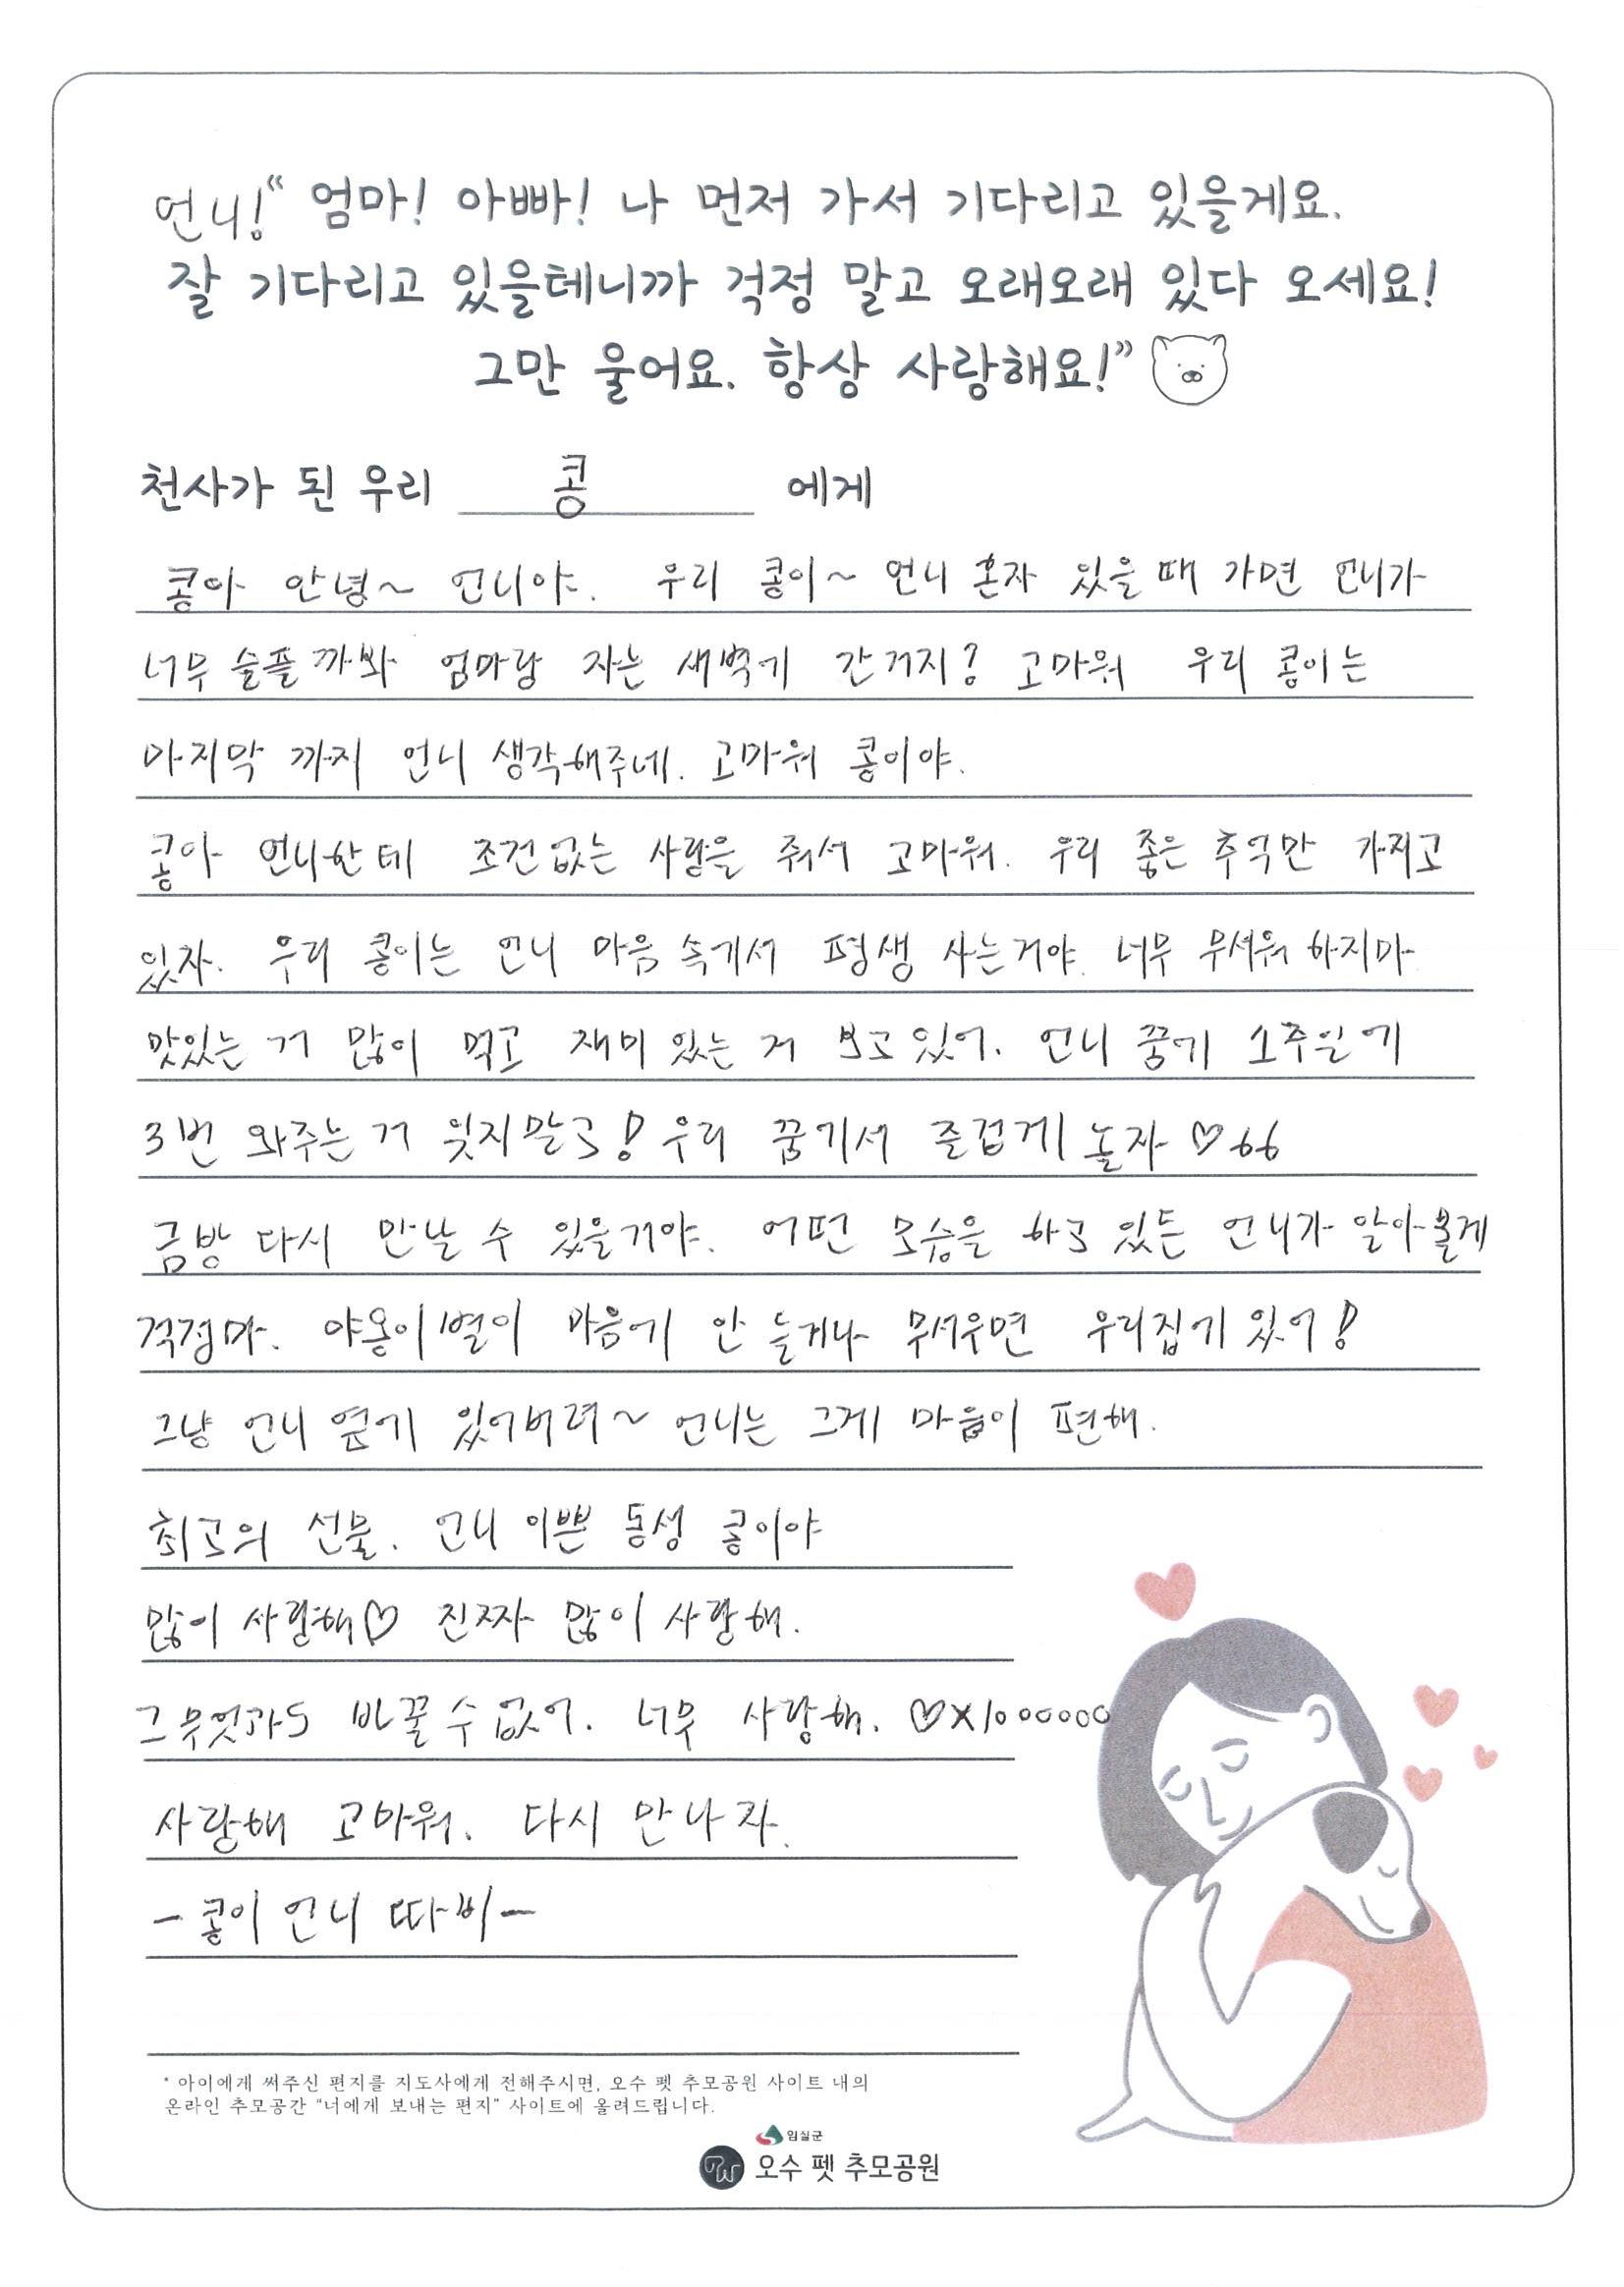 언니! “엄마! 아빠! 나 먼저 가서 기다리고 있을게요.
잘 기다리고 있을테니까 걱정 말고 오래오래 있다 오세요!
그만 울어요. 항상 사랑해요!”
천사가 된 우리 콩 에게
콩아 안녕~ 언니야. 우리 콩이~ 언니 혼자 있을 때 가면 언니가
너무 슬플까봐 엄마랑 자는 새벽에 간거지? 고마워 우리 콩이는
마지막 까지 언니 생각해주네. 고마워 콩이야.
콩아 언니한테 조건없는 사랑을 줘서 고마워. 우리 좋은 추억만 가지고
있자. 우리 콩이는 언니 마음 속에서 평생 사는거야. 너무 무서워 하지마
맛있는 거 많이 먹고 재미 있는 거 보고 있어. 언니 꿈에 1주일에
3번 와주는 거 잊지말고! 우리 꿈에서 즐겁게 놀자 ♡ㅎㅎ
금방 다시 만날 수 있을거야. 어떤 모습을 하고 있든 언니가 알아볼게
걱정마. 야옹이별이 마음에 안 들거나 무서우면 우리집에 있어!
그냥 언니 옆에 있어버려~ 언니는 그게 마음이 편해.
최고의 선물. 언니 이쁜 동생 콩이야
많이 사랑해♡ 진짜 많이 사랑해.
그 무엇과도 바꿀 수 없어. 너무 사랑해. ♡×1000000
사랑해 고마워. 다시 만나자.
- 콩이 언니 따비 -
* 아이에게 써주신 편지를 지도사에게 전해주시면, 오수 펫 추모공원 사이트 내의
온라인 추모공간 “너에게 보내는 편지” 사이트에 올려드립니다.
임실군
오수 펫 추모공원